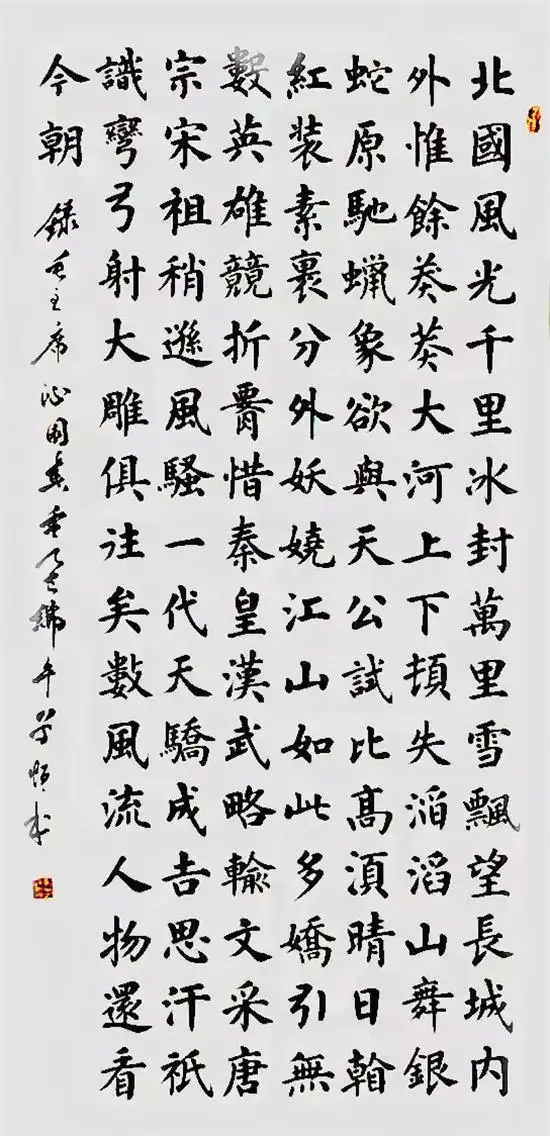 北國風光千里冰封萬里雪飄望長城内
外惟餘莽莽大河上下頓失滔滔山舞銀
蛇原馳蠟象欲與天公試比高湏晴日翰
紅装素裹分外妖嬈江山如此多嬌引無
數英雄競折腰惜秦皇漢武略輸文采唐
宗宋祖稍遜風騷一代天驕成吉思汗祇
識彎弓射大雕俱往矣數風流人物還看
今朝 錄毛主席沁園春 端午